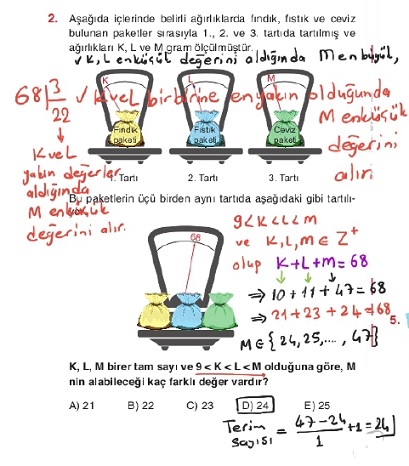 2. Aşağıda içlerinde belirli ağırlıklarda fındık, fıstık ve ceviz
bulunan paketler sırasıyla 1., 2. ve 3. tartıda tartılmış ve
ağırlıkları K, L ve M gram ölçülmüştür.
✓ K, L en küçük değerini aldığında M en büyük,
✓ K ve L birbirine en yakın olduğunda
M en küçük
değerini
alır
68 | 3
22
K ve L
yakın değerler
aldığında
M en küçük
değerini alır.
K
L
M
Fındık paketi
Fıstık paketi
Ceviz paketi
Tartı
2. Tartı
3. Tartı
Bu paketlerin üçü birden aynı tartıda aşağıdaki gibi tartılı-
68
9<K<L<M
ve K,L,M ∈ Z⁺
olup K+L+M=68
⇒ 10+11+47=68
⇒ 21+23+24=68
5.
M ∈ {24, 25, ..., 47}
K, L, M birer tam sayı ve 9 < K < L < M olduğuna göre, M
nin alabileceği kaç farklı değer vardır?
A) 21 B) 22 C) 23 D) 24 E) 25
Terim sayısı = 47-24/1 +1 = 24